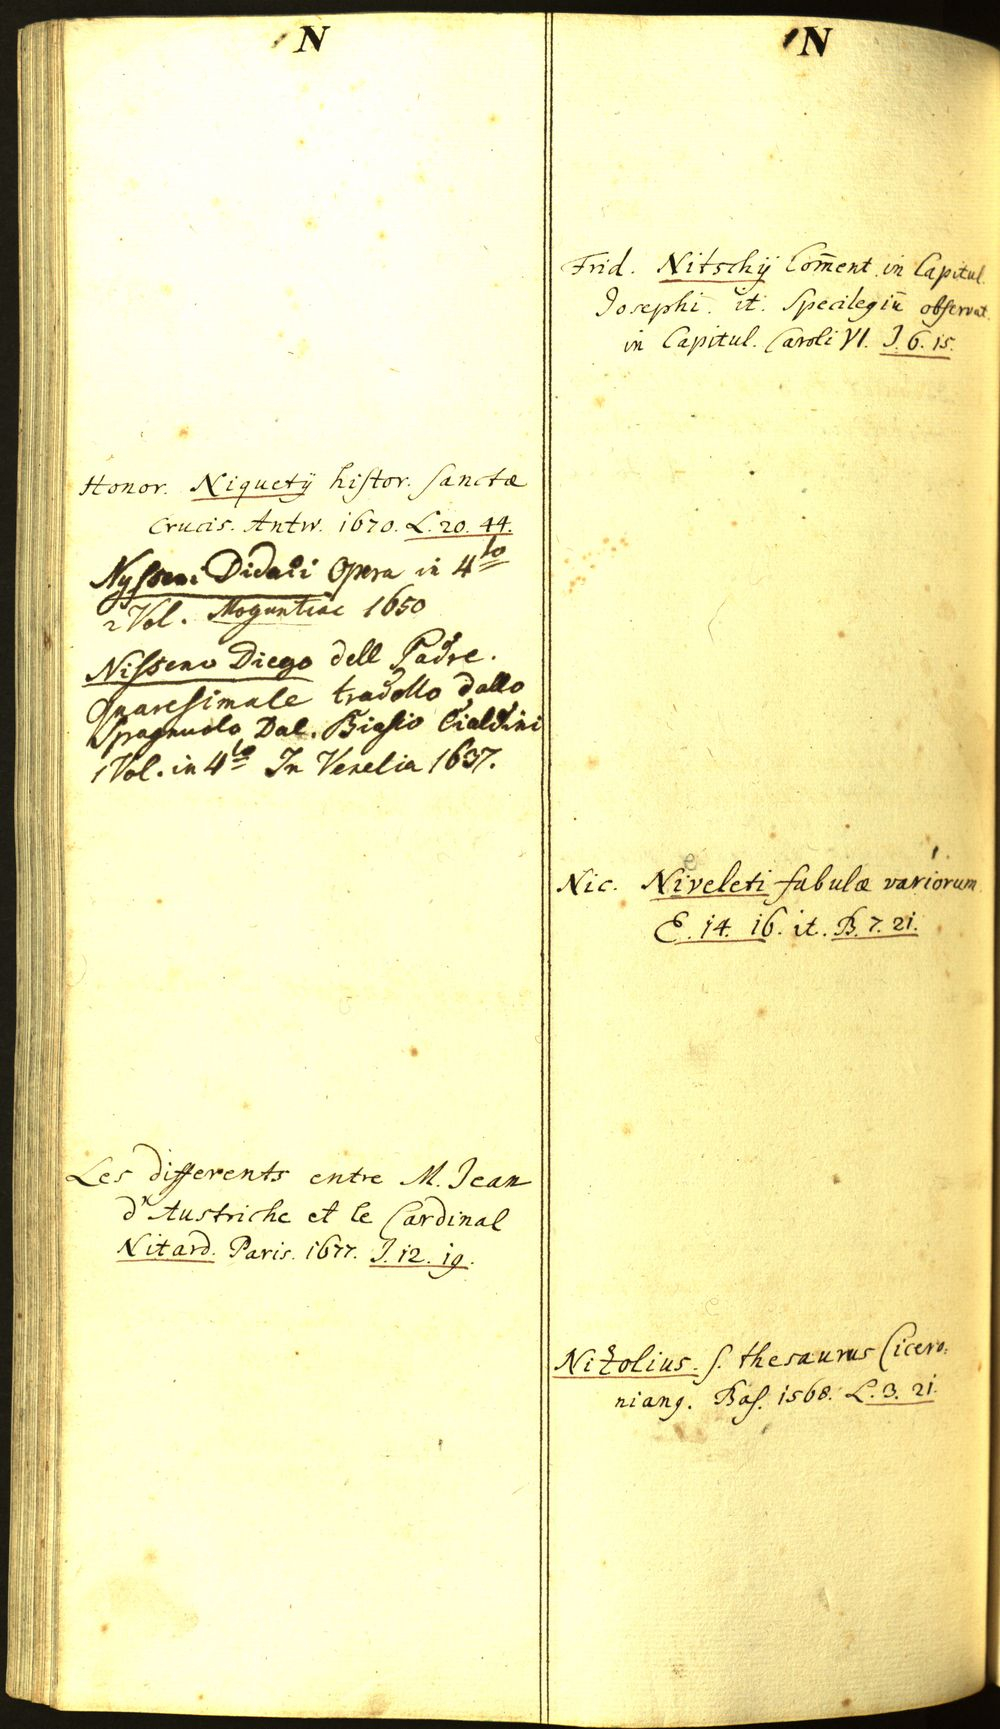 N
Honor. Niquetÿ histor. Sanctæ
Crucis. Antw. 1670. L. 20. 44.
Nysseni Didaci Opera in 4to
2 Vol. Moguntiae 1650
Nisseno Diego dell Padre.
Quaresimale tradotto dallo
Spagnuolo Dal. Biasio Cialdini
1 Vol. in 4to In Venetia 1637.
Les differents entre M. Jean
d'Austriche et le Cardinal
Nitard. Paris. 1677. J. 12. 19.
N
Frid. Nitschÿ Com̄ent in Capitul.
Josephi. it. Specilegiū observat.
in Capitul. Caroli VI. J. 6. 15.
Nic. Niveleti fabulæ variorum.
E. 14. 16. it. B. 7. 21.
Nizolius. s. thesaurus Cicero:
nian9. Bas. 1568. L. 3. 21.